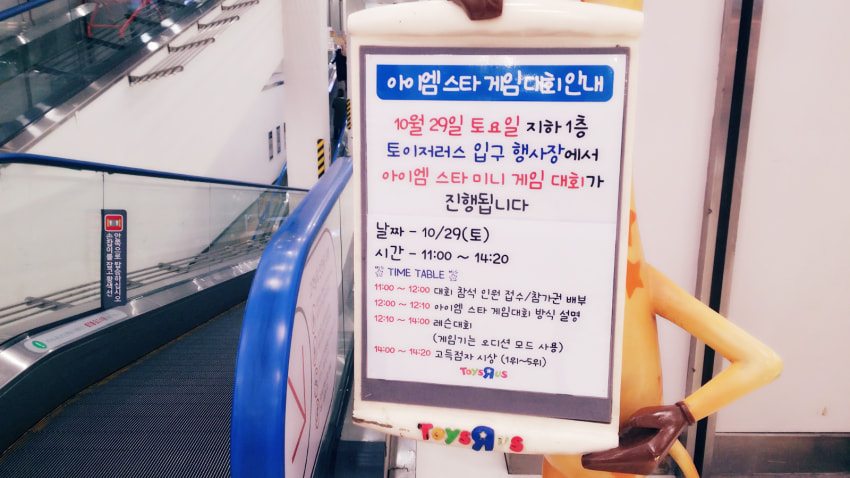 아이엠 스타 게임대회 안내
10월 29일 토요일 지하 1층
토이저러스 입구 행사장에서
아이엠 스타 미니 게임 대회가
진행됩니다
날짜 - 10/29(토)
시간 - 11:00 ~ 14:20
TIME TABLE
11:00 ~ 12:00 대회 참석 인원 접수/참가권 배부
12:00 ~ 12:10 아이엠 스타 게임대회 방식 설명
12:10 ~ 14:00 레슨대회
(게임기는 오디션 모드 사용)
14:00 ~ 14:20 고득점자 시상 (1위~5위)
TOYSЯUS
TOYSЯUS
손잡이를 잡고 황색선
안쪽으로 탑승하십시오